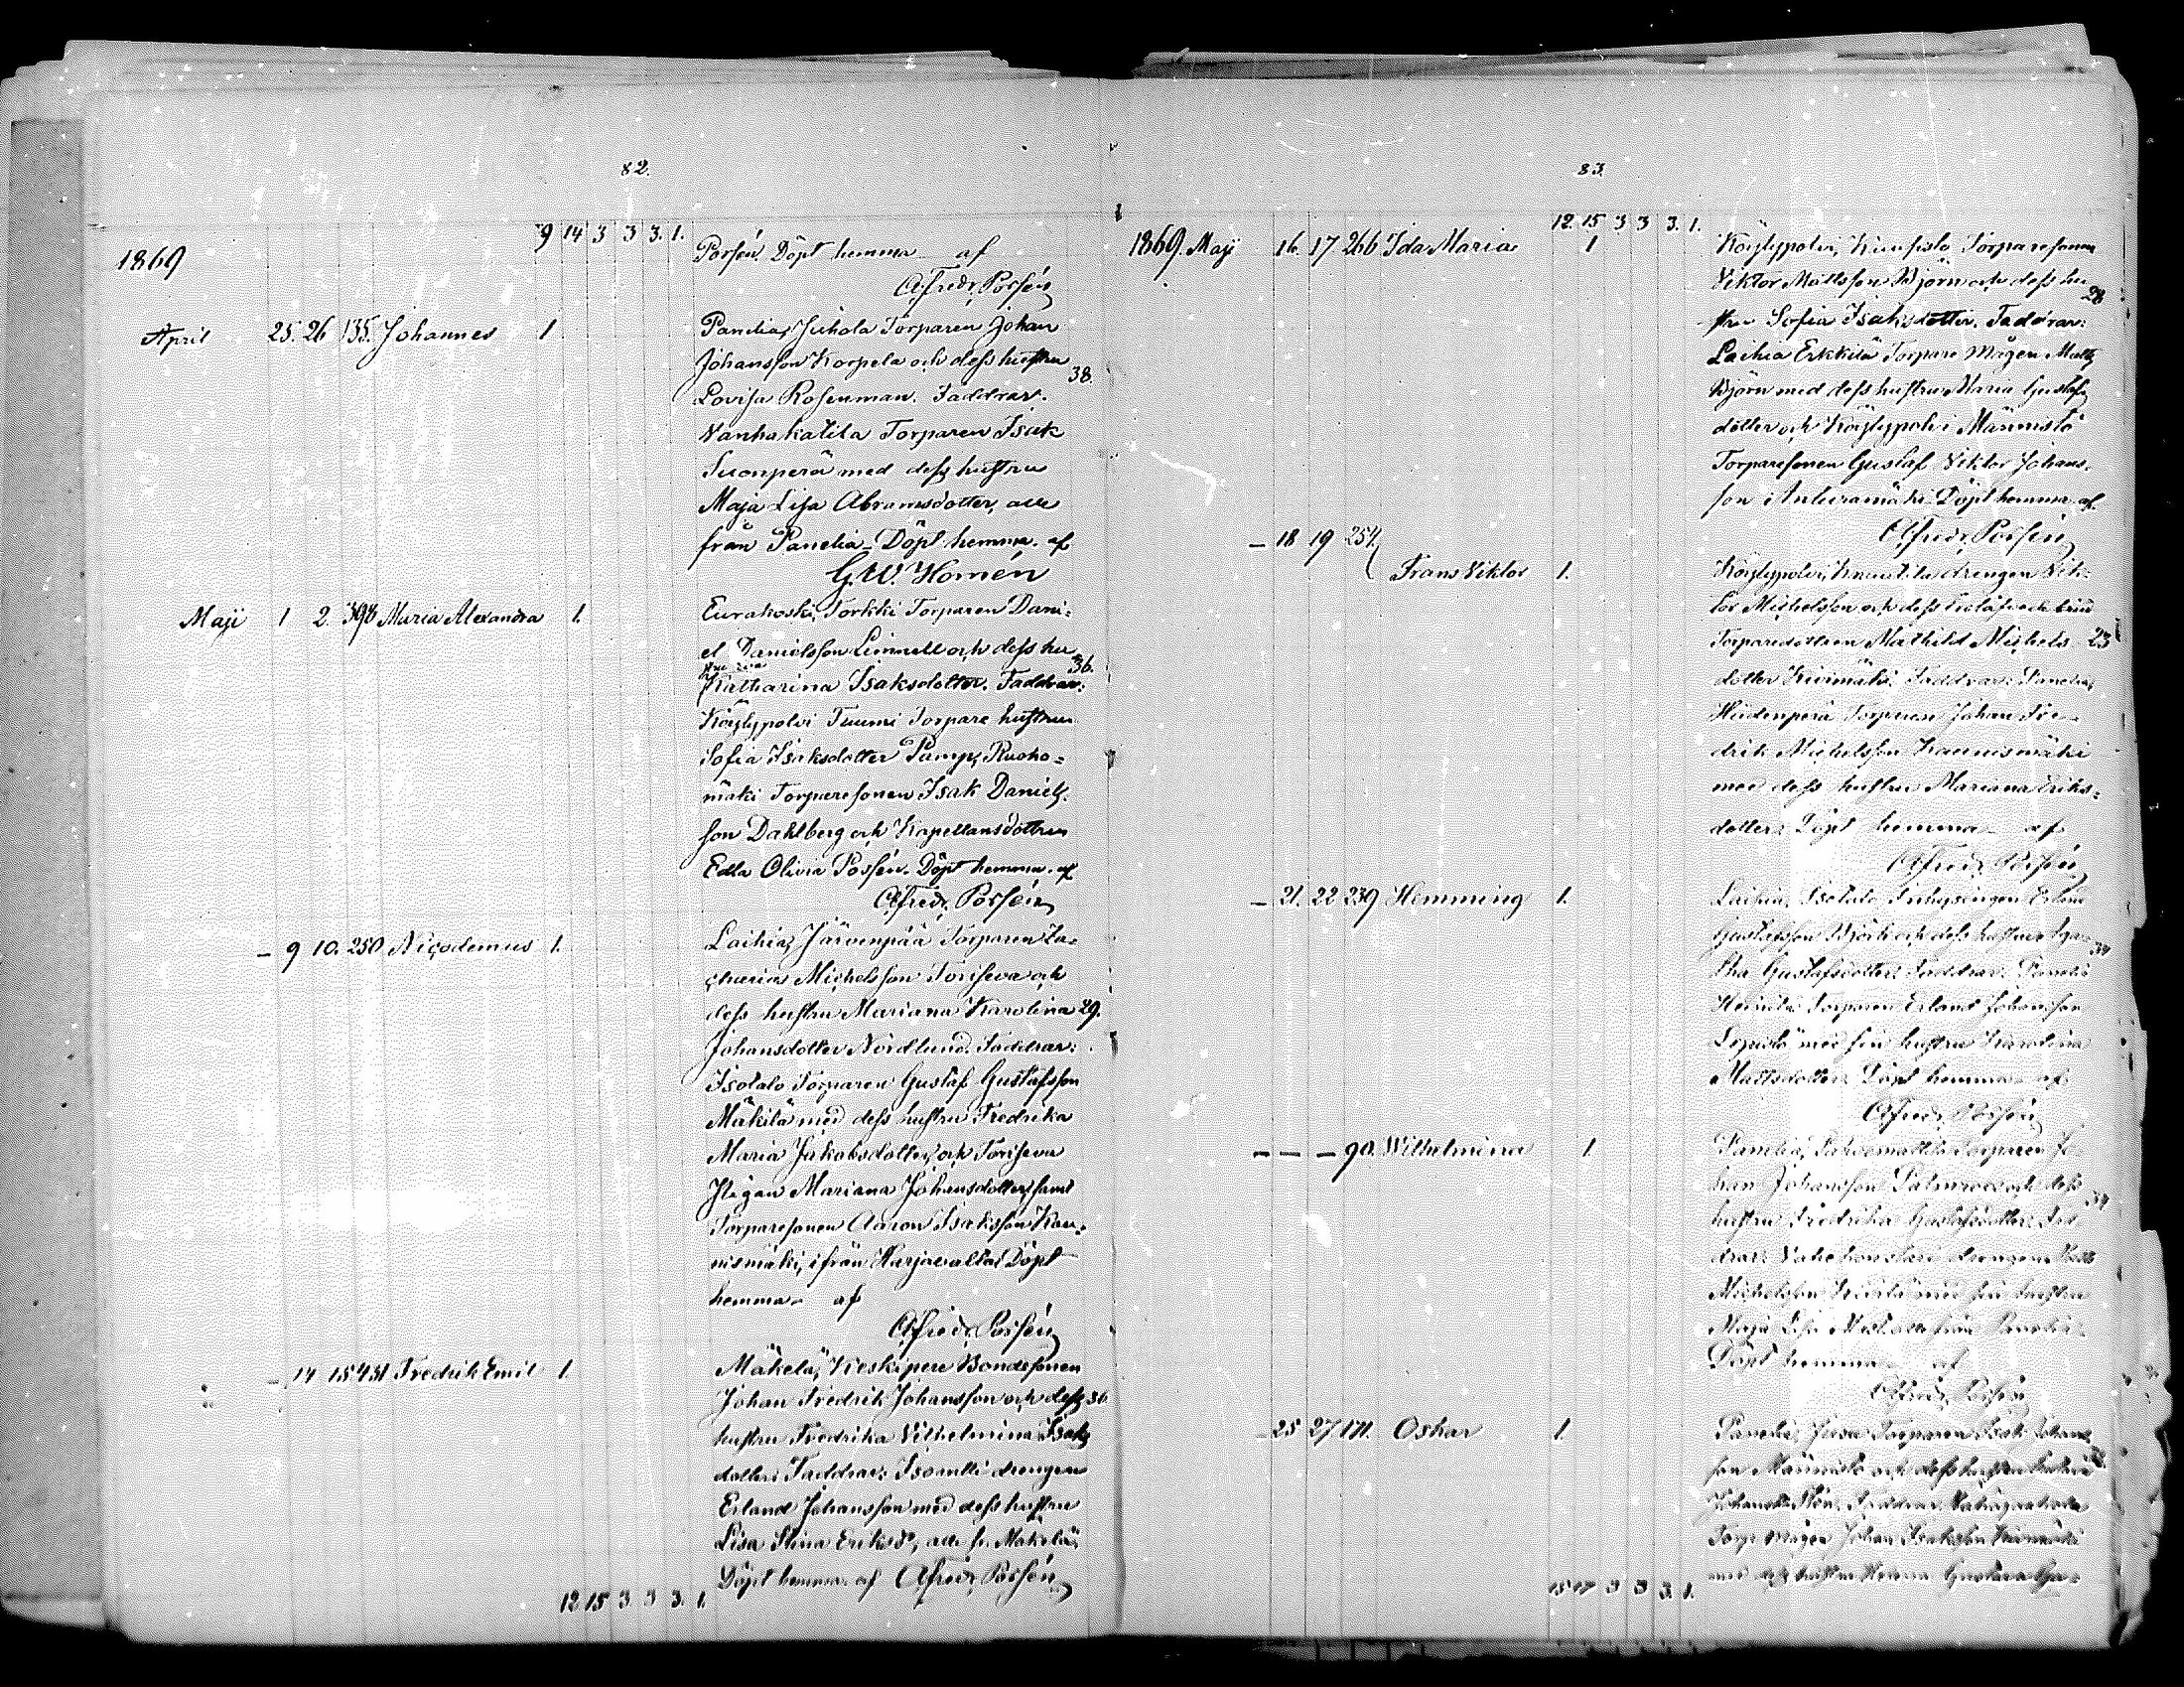 82.
9 14 3 3 3. 1.
1869
Porsén. Döpt hemma af
Alfredr. Porsén
April 25. 26 135. Johannes 1
Panelia, Juhola Torparen Johan
Johansson Korpela och dess hustru
38.
Lovisa Rosenman. Faddrar.
Vanhakatila Torparen Isak
Suonperä med dess hustru
Maja Lisa Abramsdotter, alla
från Panelia. Döpt hemma. af
G.W. Homén
Maji 1 2. 398 Maria Alexandra 1.
Eurakoski, Torkki Torparen Dani=
el Danielsson Linnell och dess hu
36.
Katharina Isaksdotter. Faddrar:
Köylypolvi Tuumi Torpare hustrun
Sofia Isaksdotter Pamp, Ruoho=
mäki Torparesonen Isak Daniels.
son Dahlberg och Kapellansdottren
Edla Olivia Porsén. Döpt hemma. af
Alfredr. Porsén
– 9 10. 250 Nicodemus 1.
Laihia, Järvenpää Torparen Za=
charias Michelsson Toriseva och
dess hustru Mariana Karolina 29.
Johansdotter Nordlund. Faddrar:
Isotalo Torparen Gustaf Gustafsson
Mäkilä med dess hustru Fredrika
Maria Jakobsdotter, och Toriseva
Pigan Mariana Johansdotter, samt
Torparesonen Aaron Isaksson Kau=
nismäki, ifrån Harjavalta. Döpt
hemma. af
Alfredr. Porsén
– 14 15 431 Fredrik Emil 1.
Mäkelä, Keskipere Bondesonen
Johan Fredrik Johansson och dess 36
hustru Fredrika Vilhelmina Isaks
dotter. Faddrar: Isoantti drengen
Erland Johansson med dess hustru
Lisa Stina Eriksdr, alla fr. Mäkelä,
Döpt hemma. af Alfredr. Porsén
12 15 3 3 3. 1.
83.
12 15 3 3 3. 1.
1869. Maji 16. 17 266 Ida Maria 1
Köylypolvi, Torparesonen
Viktor Mattsson Björn och dess hu
28
stru Sofia Isaksdotter. Faddrar:
Laihia Erkkilä Torpare Mågen Matts
Björn med dess hustru Maria Gustafs
dotter och Köylypolvi Männistö
Torparesonen Gustaf Viktor Johans.
son i Anturamäki. Döpt hemma. af
Alfredr. Porsén
– 18 19 254.
Frans Viktor 1.
Köylypolvi, Knuutila drengen Vik=
tor Michelsson och dess
Torparedottren Mathild Michels 23
dotter Kivimäki. Faddrar: Panelia,
Hiidenperä Torparen Johan Fre=
drik Michelsson Kaunismäki
med dess hustru Mariana Eriks=
dotter. Döpt hemma af
Alfredr. Porsén
– 21. 22 239 Hemming 1.
Laihia, Isotalo Erland
Gustafsson Björk och dess hustru Aga=
34
tha Gustafsdotter. Faddrar: Panelia
Heinilä Torparen Erland Johansson
med sin hustru Karolina
Mattsdotter. Döpt hemma. af
Alfredr. Porsén
– – – 90. Wilhelmina 1.
Panelia, Torparen Jo
han Johansson och dess
34
hustru Fredrika Gustafsdotter. Fad
drar: drengen Matts
Michelsson med sin hustru
Maja Lisa från Panelia.
Döpt hemma af
Alfredr. Porsén
– 25 27 171. Oskar 1.
Panelia, Torparen Isak Johans
son Männistö och dess hustru
Faddrar:
Torp. Mågen Johan Isaksson
med dess hustru Gustava
15 17 3 3 3. 1.